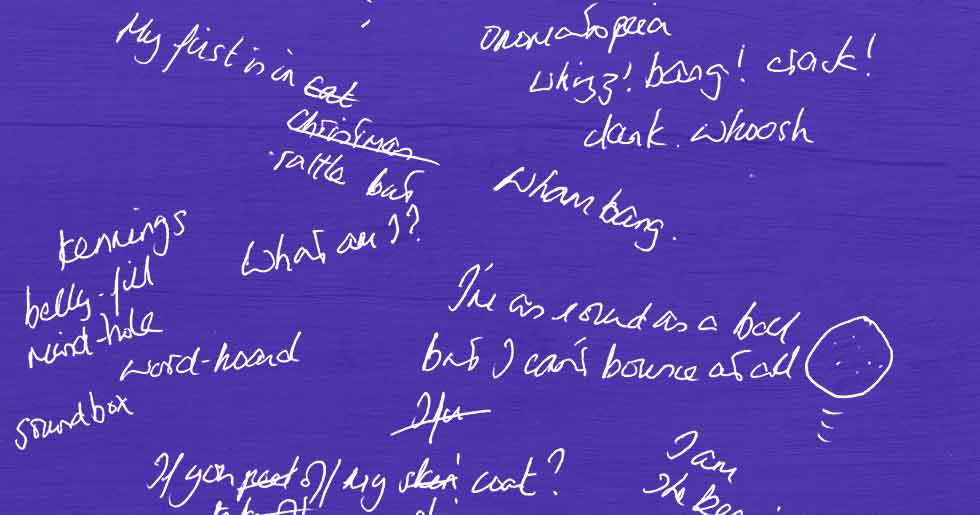 My first is in cat
Christmas
rattle but
What am I?
onomatopoeia
whizz! bang! crack!
clank. whoosh
Wham bang.
kennings
belly-fill
word-hoard
soundbox
I'm as round as a ball
but I can't bounce at all
If you peel off my skin coat?
I am
the